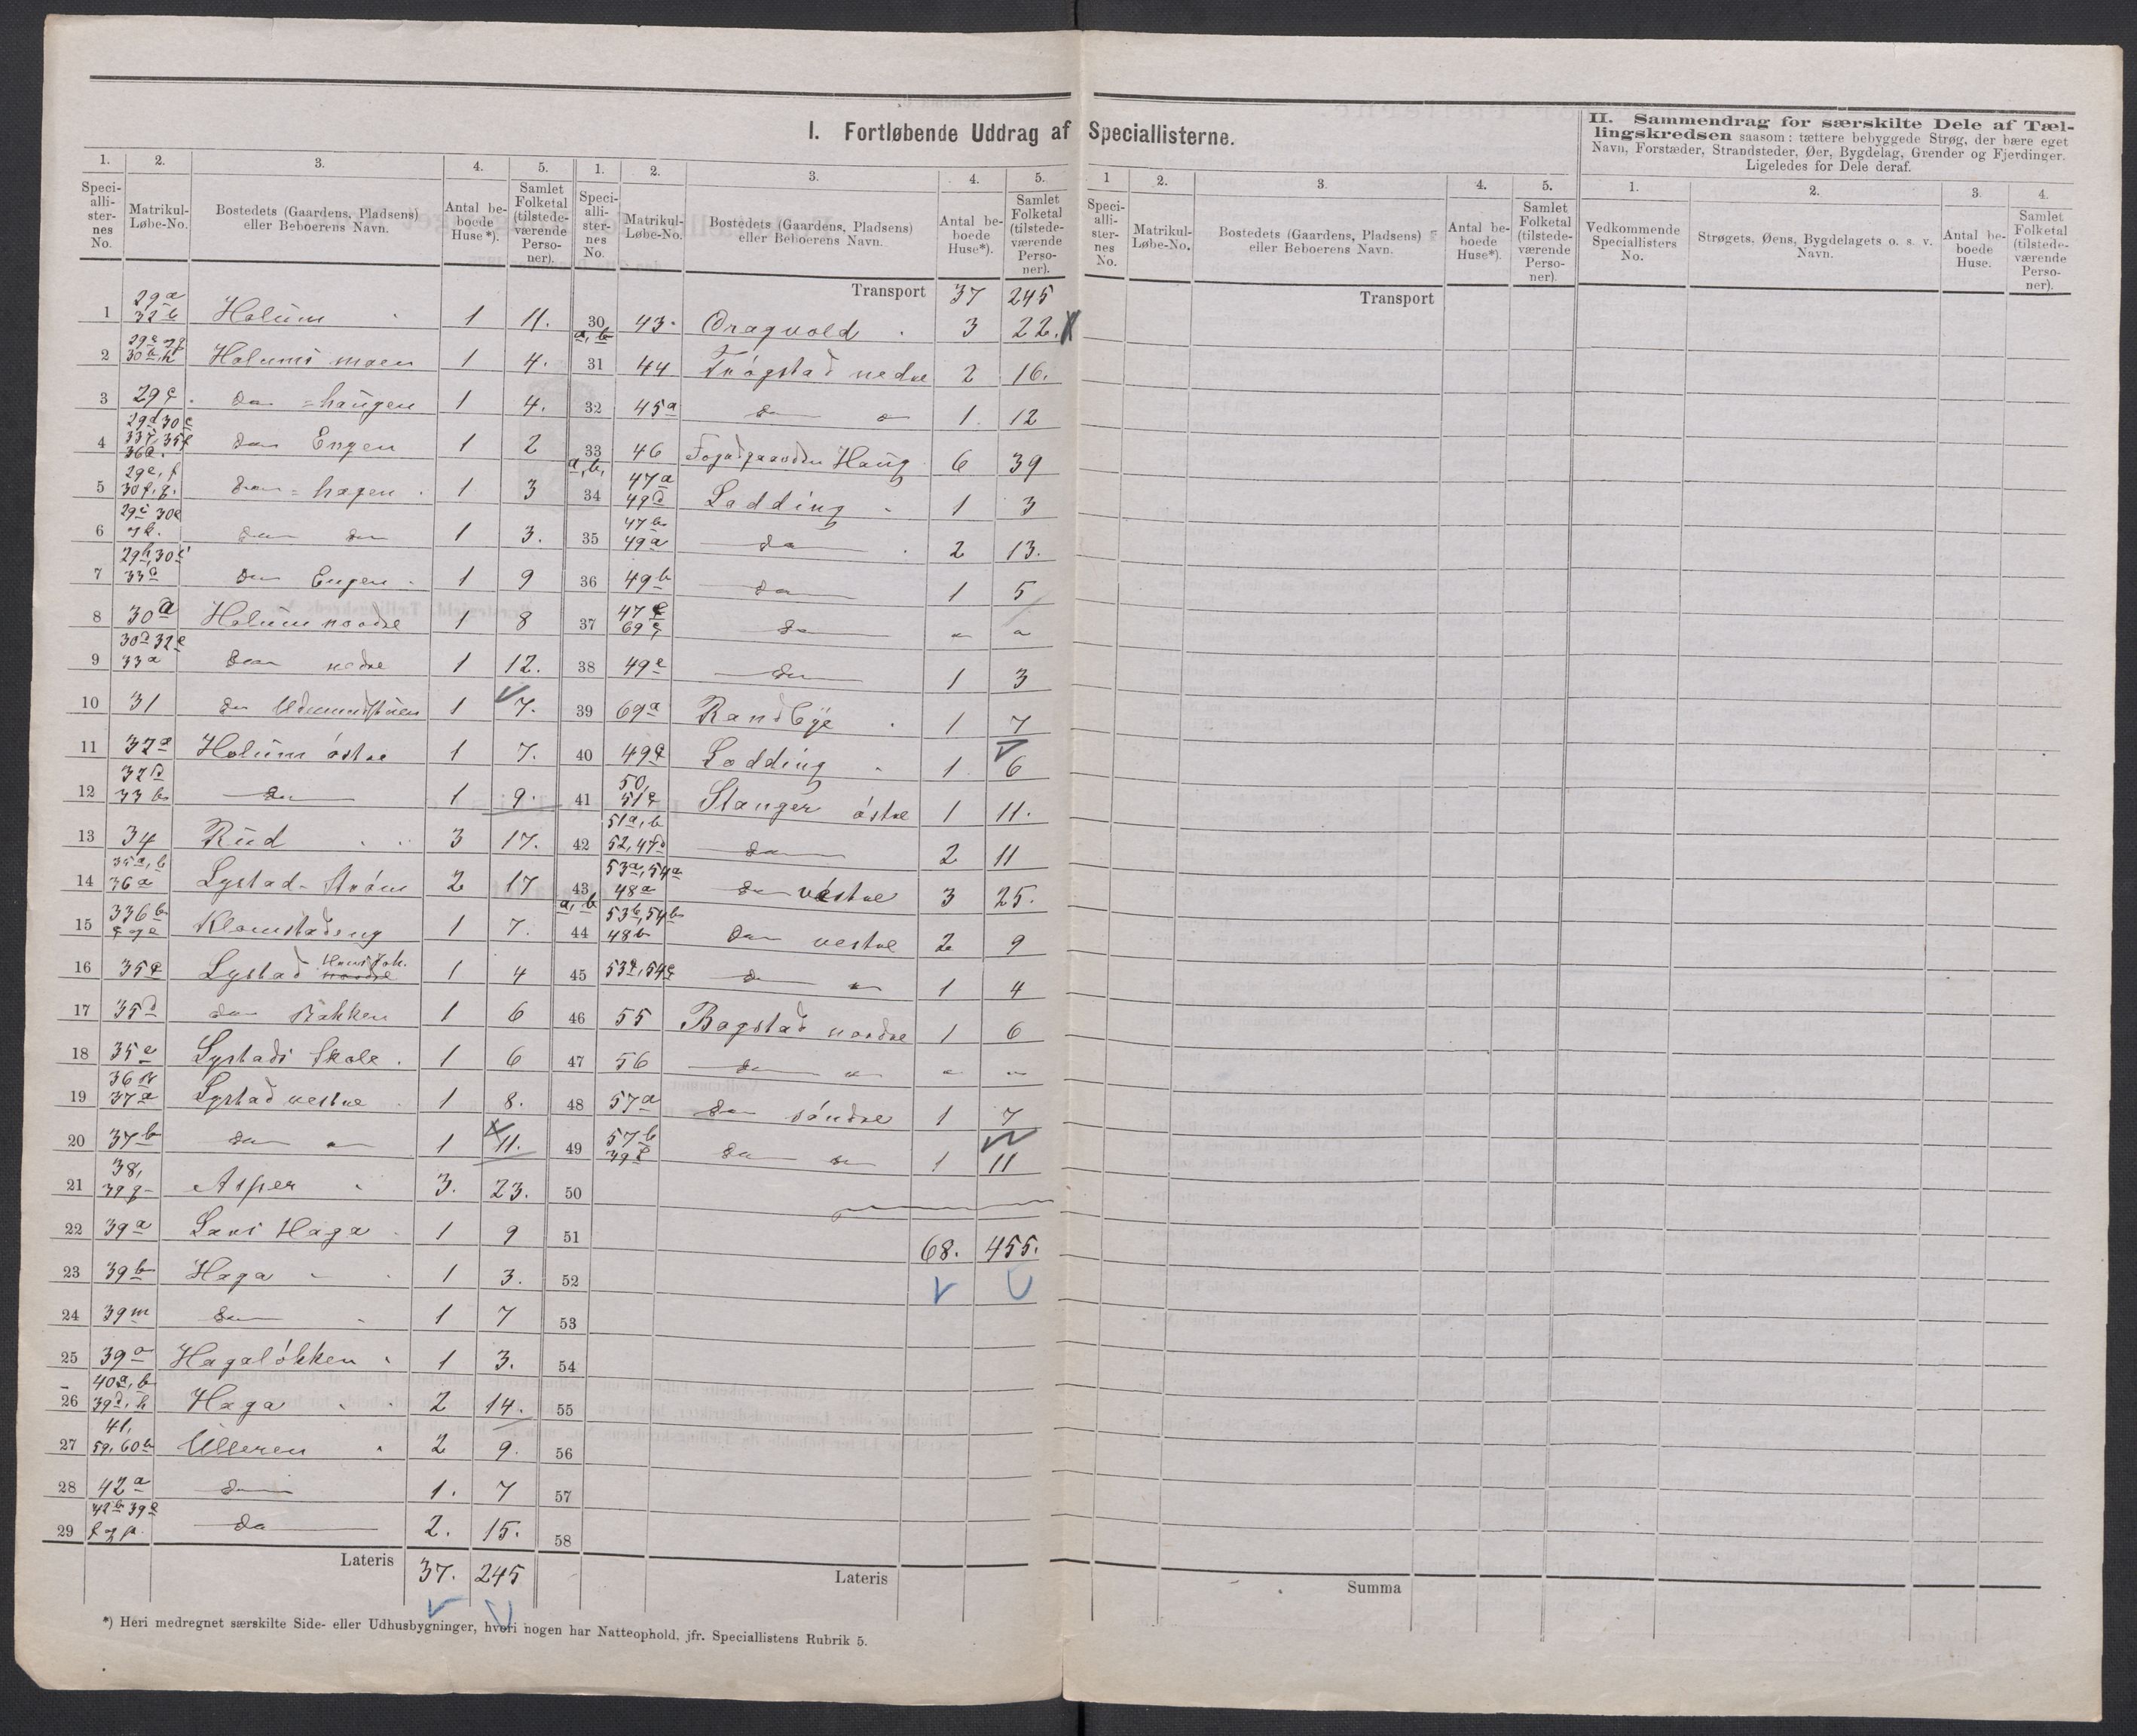 I. Fortløbende Uddrag af Speciallisterne.
II. Sammendrag for særskilte Dele af Tæl-
lingskredsen saasom: tættere bebyggede Strøg, der bære eget
Navn, Forstæder, Strandsteder, Øer, Bygdelag, Grender og Fjerdinger.
Ligeledes for Dele deraf.
1. 2. 3. 4. 5. 1. 2. 3. 4. 5. 1 2. 3. 4. 5. 1. 2. 3. 4.
Speci-alli-ster-nes No. Matrikul-Løbe-No. Bostedets (Gaardens, Pladsens) eller Beboerens Navn. Antal be-boede Huse*). Samlet Folketal (tilstede-værende Perso-ner).
Speci-alli-ster-nes No. Matrikul-Løbe-No. Bostedets (Gaardens, Pladsens) eller Beboerens Navn. Antal be-boede Huse*). Samlet Folketal (tilstede-værende Perso-ner).
Speci-alli-ster-nes No. Matrikul-Løbe-No. Bostedets (Gaardens, Pladsens) eller Beboerens Navn. Antal be-boede Huse*). Samlet Folketal (tilstede-værende Perso-ner).
Vedkommende Speciallisters No. Strøgets, Øens, Bygdelagets o. s. v. Navn. Antal be-boede Huse. Samlet Folketal (tilstede-værende Perso-ner).
1 29a 32b Holum 1 11.
2 Holums moen 1 4.
3 29c. do =haugen 1 4.
4 do Engen 1 2
5 29e, f 30f, g. do = hagen 1 3
6 do do 1 3.
7 33c do Engen 1 9
8 30a Holum nordre 1 8
9 33a do nedre 1 12.
10 31 do 1 7.
11 32a Holum østre 1 7.
12 32d 33b do 1 9.
13 34 Rud 3 17.
14 35a, b 36a Lystad-Strøm 2 17
15 Klomstadeng 1 7.
16 35c Lystad 1 4
17 35d do Bakken 1 6
18 35e Lystads Skole 1 6
19 37a Lystad vestre 1 8.
20 37b do 1 11.
21 38, 39g Asper 3. 23.
22 39a Lars Haga 1 9
23 39b Haga 1 3.
24 39m do 1 7
25 39o Hagaløkken 1 3.
26 40a, b 39d, h Haga 2 14.
27 41, 59, 60b Ulleren 2 9.
28 42a do 1. 7
29 do 2. 15.
Lateris 37. 245
Transport 37 245
30 a, b 43 Dragvold 3 22.
31 44 Frogstad nedre 2 16.
32 45a do 1. 12
33 a, b, 46 Fogedgaarden Haug 6 39
34 47a 49d Ladding 1 3
35 47b 49a do 2 13.
36 49b do 1 5
37 47c do
38 49e do 1 3
39 69a Randbye 1 7
40 49c Lodding 1 6
41 50, 51c Stanger østre 1 11.
42 51a, b 52, 47d do 2 11
43 a, b 53a, 54a 48a do vestre 3 25.
44 53b, 54b 48b do vestre 2 9
45 53c, 54c do 1 4
46 55 Bogstad nordre 1 6
47 56 do
48 57a do søndre 1 7
49 57b do 1 11
50
51 68. 455.
52
53
54
55
56
57
58
Lateris
Transport
Summa
*) Heri medregnet særskilte Side- eller Udhusbygninger, hvori nogen har Natteophold, jfr. Speciallistens Rubrik 5.